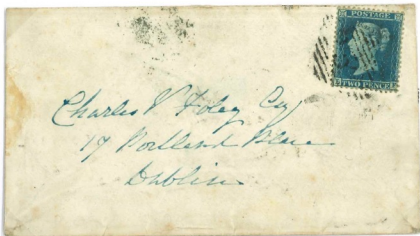 POSTAGE
TWO PENCE
Charles V Foley Esq
17 Portland Place
Dublin